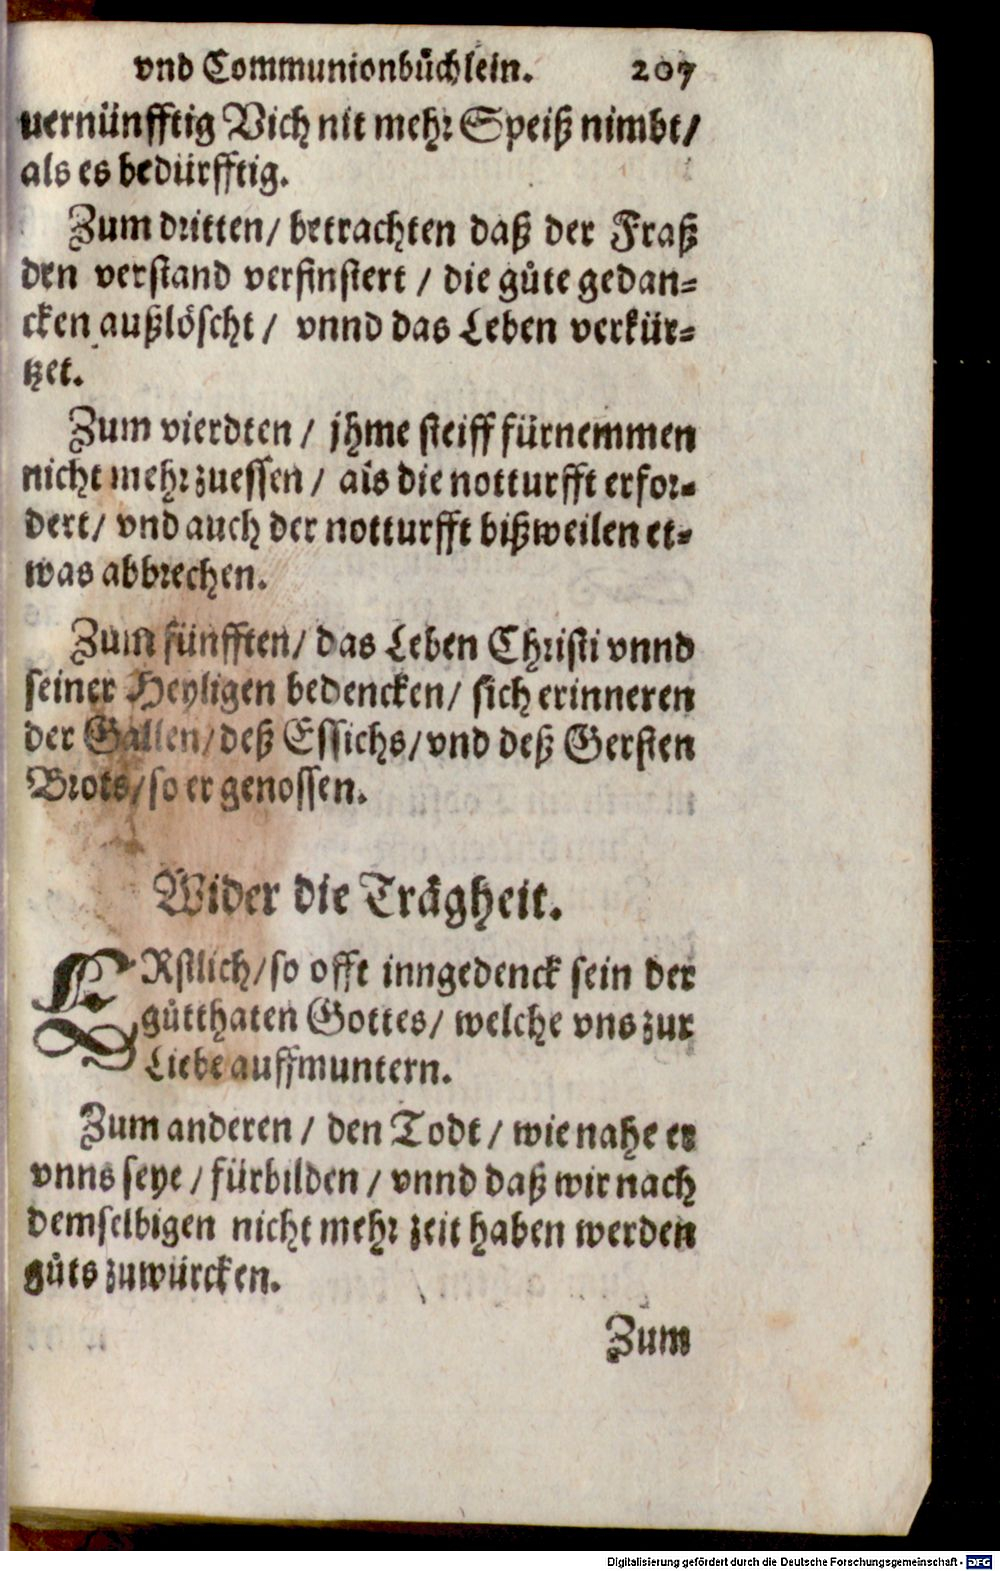 vnd Communionbüchlein. 207
uernünfftig Vich nit mehr Speiß nimbt/
als es bedürfftig.
Zum dritten/ betrachten daß der Fraß
den verstand verfinstert / die gůte gedan-
cken außlöscht / vnnd das Leben verkür-
tzet.
Zum vierdten / jhme steiff fürnemmen
nicht mehr zuessen / als die notturfft erfor-
dert/ vnd auch der notturfft bißweilen et-
was abbrechen.
Zum fünfften/ das Leben Christi vnnd
seiner Heyligen bedencken/ sich erinneren
der Gallen/ deß Essichs/ vnd deß Gersten
Brots/ so er genossen.
Wider die Trägheit.
ERstlich/ so offt inngedenck sein der
gůtthaten Gottes/ welche vns zur
Liebe auffmuntern.
Zum anderen / den Todt / wie nahe er
vnns seye / fürbilden / vnnd daß wir nach
demselbigen nicht mehr zeit haben werden
gůts zuwürcken.
Zum
Digitalisierung gefördert durch die Deutsche Forschungsgemeinschaft - DFG